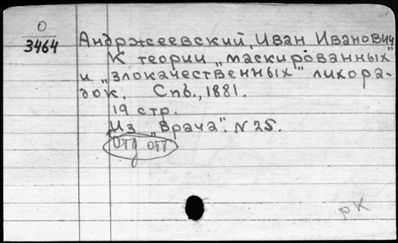 О
3464
Андржеевский, Иван Иванович
К теории „маскированных"
и „злокачественных" лихора-
док. Спб., 1881.
19 стр.
Из „Врача". N 25.
отд отт
рК